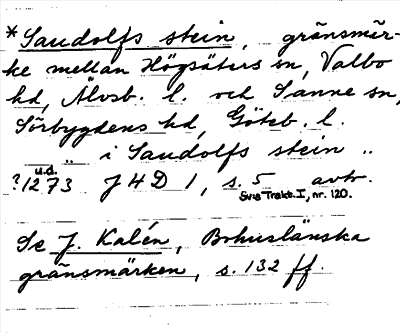 *Saudolfs stein, gränsmär-
ke mellan Högsäters sn, Valbo
hd, Älvsb. l. och Sanne sn,
Sörbygdens hd, Göteb. l.
„ i Saudolfs stein „
u.d.
?1273 J 4 D 1, s. 5 avtr.
Svia Trakt. I, nr. 120.
Se J. Kalén, Bohuslänska
gränsmärken, s. 132 ff.